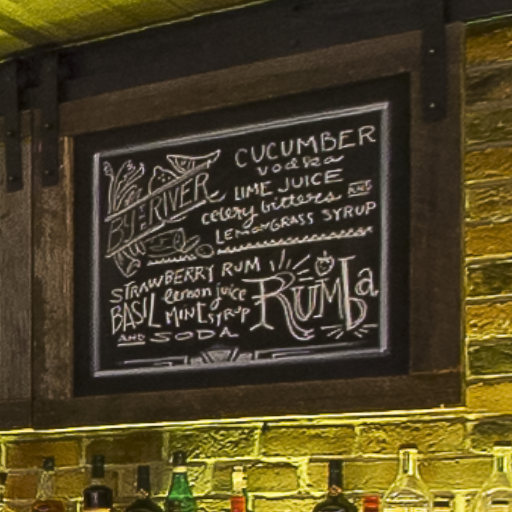 BY THE RIVER
CUCUMBER
vodka
LIME JUICE AND
celery bitters
LEMONGRASS SYRUP
STRAWBERRY RUM
lemon juice
BASIL MINT SYRUP
AND SODA
RUMba